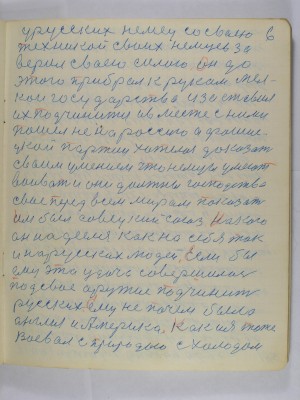 у русских немец со своею 6
техникой своих немцев за
верил своею силою он до
этого прибрал к рукам мел-
кой государства и заставил
их подчинить и вместе с ними
пошел не на россию а
ской партии хотел доказат
своим умением что немцы умеют
воиват и они должны господство
свае перед всем мирам показат
им был совецкий саюз на каго
он наделся как на себя так
и на русских людей, Если бы
ему это удача совершилас
под свае аружие подчинит
русских ему не почем было
англия и Америка, Как их тоже
Воевал с природаю с Холодам